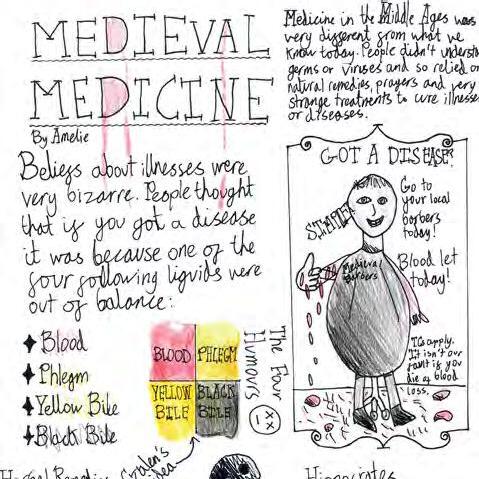 MEDIEVAL
MEDICINE
By Amelie
Medicine in the Middle Ages was
very different from what we
know today. People didn't underst
germs or viruses and so relied o
natural remedies, prayers and very
strange treatments to cure illnesse
or diseases.
Beliefs about illnesses were
very bizarre. People thought
that if you got a disease
it was because one of the
four following liquids were
out of balance:
Blood
Phlegm
Yellow Bile
Black Bile
BLOOD
PHLEGM
YELLOW
BILE
BLACK
BILE
The Four
Humours
GOT A DISEASE?
Go to
your local
barbers
today!
Blood let
today!
Medieval
Barbers
TCs apply.
It isn't our
fault if you
die of blood
loss.
Galen's
idea
Hippocrates